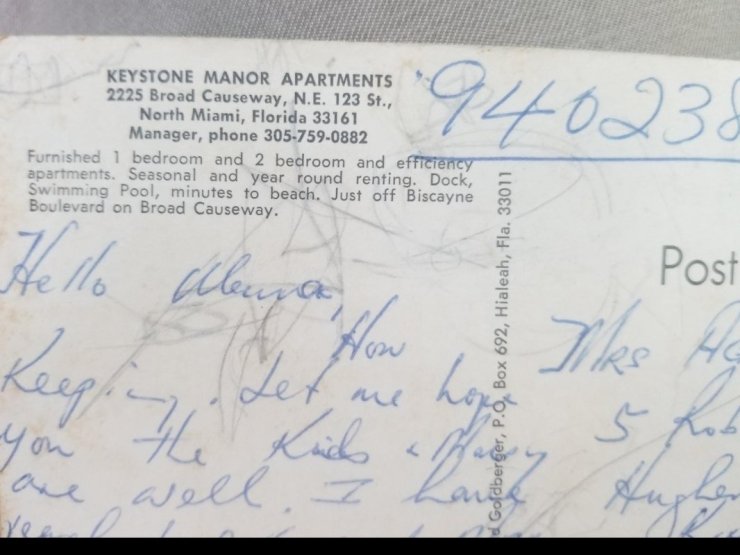 KEYSTONE MANOR APARTMENTS
2225 Broad Causeway, N.E. 123 St.,
North Miami, Florida 33161
Manager, phone 305-759-0882
Furnished 1 bedroom and 2 bedroom and efficiency
apartments. Seasonal and year round renting. Dock,
Swimming Pool, minutes to beach. Just off Biscayne
Boulevard on Broad Causeway.
940238
Hello
How
Keeping. Let me hope
you the Kids &
are well. I have
Goldberger, P.O. Box 692, Hialeah, Fla. 33011
Post
Mrs
5 Rob
Hughen